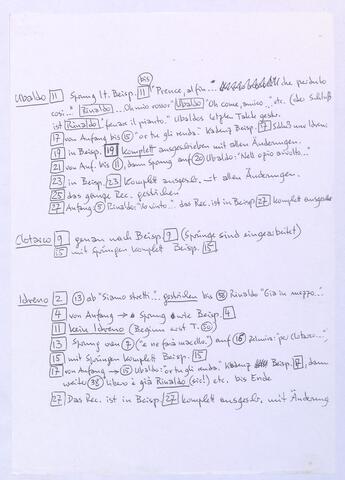 bis
Ubaldo 11 Sprung lt. Beisp. 11 "Prence, al fin... che perduto
così..." Rinaldo ...Oh mio rossor" Ubaldo "Oh come, amico..." etc. (der Schluß
ist Rinaldo "fenan il pianto". Ubaldos letzten Takte gestr.
17 von Anfang bis 15 "or tu gli svida." Kadenz Beisp. 17 Schluß
17 in Beisp. 19 Komplett ausgeschrieben mit allen Änderungen.
21 von Anf. bis 11, dann Sprung auf 20 Ubaldo: "Nell
23 in Beisp. 23 Komplett ausgeschr. mit allen Änderungen.
25 das ganze Rec. gestrichen
27 Anfang 5 Rinaldo: "Io vinto". das Rec. ist in Beisp 27 komplett ausgeschr
Clotarco 9 genau nach Beisp. 9 (Sprünge sind eingearbeitet)
15 mit Sprüngen komplett Beisp. 15
Idreno 2 13 ab "Siamo stretti.." gestrichen bis 58 Rinaldo "Già in mezzo..."
4 von Anfang → Sprung wie Beisp. 4
11 kein Idreno (Beginn erst T. 50)
13 Sprung von 7 auf 16 Zelmira: "per Clotarco..."
15 mit Sprüngen komplett Beisp. 15
17 von Anfang → 15 Ubaldo: "or tu gli svida." Kadenz Beisp. 17, dann
weiter 38 libero è già Rinaldo (sic!) etc. bis Ende
27 Das Rec. ist in Beisp. 27 komplett ausgeschr. mit Änderung